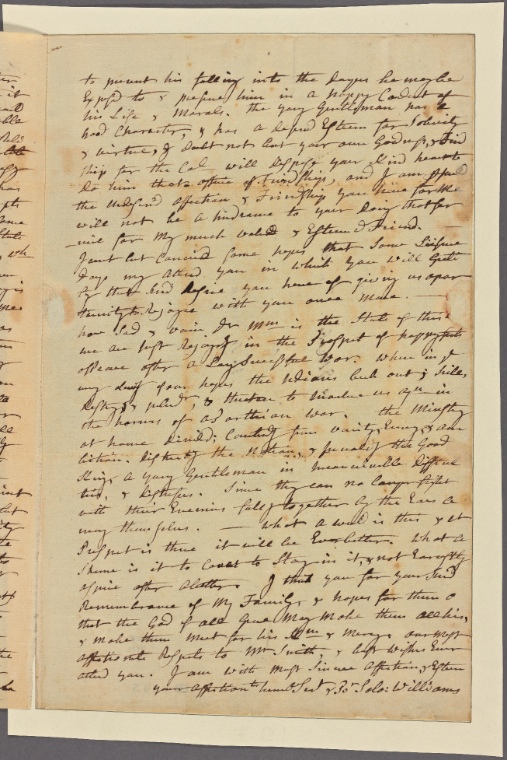 to prevent his falling into the dangers he maybe
Expos'd to & preserve him in a Happy Conduct of
his Life & Morals. the young Gentleman has a
good Character, & has a Esteem for
& virtue, I doubt not but your own Goodness, & Friend
ship for the Col. will dispose your kind heart to
do him that office of Friendship, and I am
the affection & Friendship you have for Me
will not be a hindrance to your doing that for
me for My much valued & Esteemed Friend.
I but some hopes that some Leisure
days may attend you in which you will
to those and desire you have of giving us oppor
tunity to Rejoyce with you once More.
how Sad & vain Dr Mm is the State of this
we are Just Rejoycing in the Prospect of happyness
of Peace after a Long Successful war. when in ye
very of our hopes the Indians break out &
destroy & , & threaten to Involve us again in
the horrors of a war. the Ministry
at home Divided; Contending from vanity, Envy, & am
bition. Distressing the Nation, & the Good
King, A young Gentleman in Difficul
ties, & Distresses. Since they can no Longer fight
with their Enemies fall together by the Ears a
mong themselves. — what a world is this & what
Prospect is there it will be Ever better. what a
Shame is it to Covet to Stay in it, & not Earnestly
aspire after a better. I thank you for your kind
Remembrance of My Family, & hopes for them &
that the God of all Grace May Make them all his,
& make them Meet for his & Mercy. our Most
affectionate Respects to Mr Smith & best wishes Ever
attend you. I am with Most Sincere Affection, & Esteem
your Affectionate humbl Sert & Br Solo: Williams